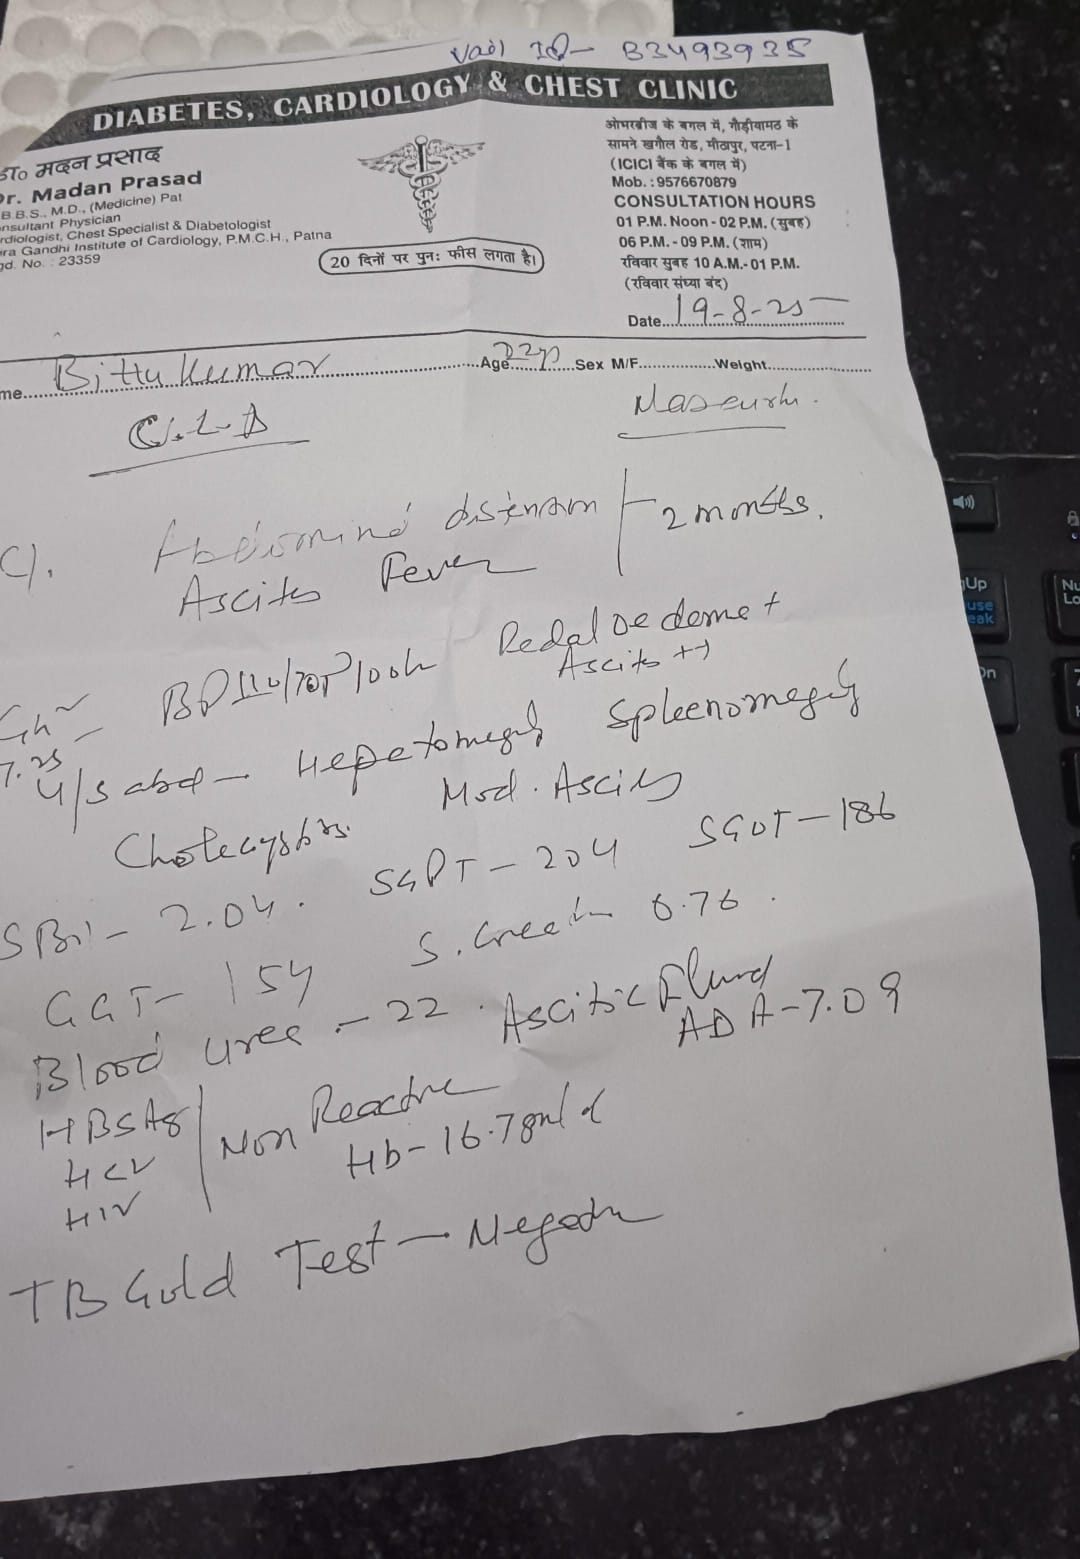 Vail ID- B3493935
DIABETES, CARDIOLOGY & CHEST CLINIC
डा० मदन प्रसाद
Dr. Madan Prasad
B.B.S., M.D., (Medicine) Pat
nsultant Physician
rdiologist, Chest Specialist & Diabetologist
ra Gandhi Institute of Cardiology, P.M.C.H., Patna
gd. No. : 23359
20 दिनों पर पुनः फीस लगता है।
ओभरब्रीज के बगल में, गौड़ीयामठ के
सामने खगौल रोड, मीठापुर, पटना-1
(ICICI बैंक के बगल में)
Mob. : 9576670879
CONSULTATION HOURS
01 P.M. Noon - 02 P.M. (सुबह)
06 P.M. - 09 P.M. (शाम)
रविवार सुबह 10 A.M.- 01 P.M.
(रविवार संध्या बंद)
Date 19-8-25
me Bittu Kumar Age Sex M/F Weight
C.L.D
Abdominal distension 2 months.
Ascites Fever
BP 110/70 P 100/m Pedal oedema +
Ascites ++
7.25
U/S abd - Hepatomegaly Spleenomegaly
Cholecystitis. Mod. Ascites
S Bil - 2.04. SGPT - 204 SGOT - 186
GGT - 154 S. Creatin 0.76.
Blood urea - 22. Ascitic Fluid
ADA - 7.09
HBSAg
HCV Non Reactive
HIV Hb - 16.7 gm/d
TB Gold Test - Negative
Up
use
eak
Nu
Lo